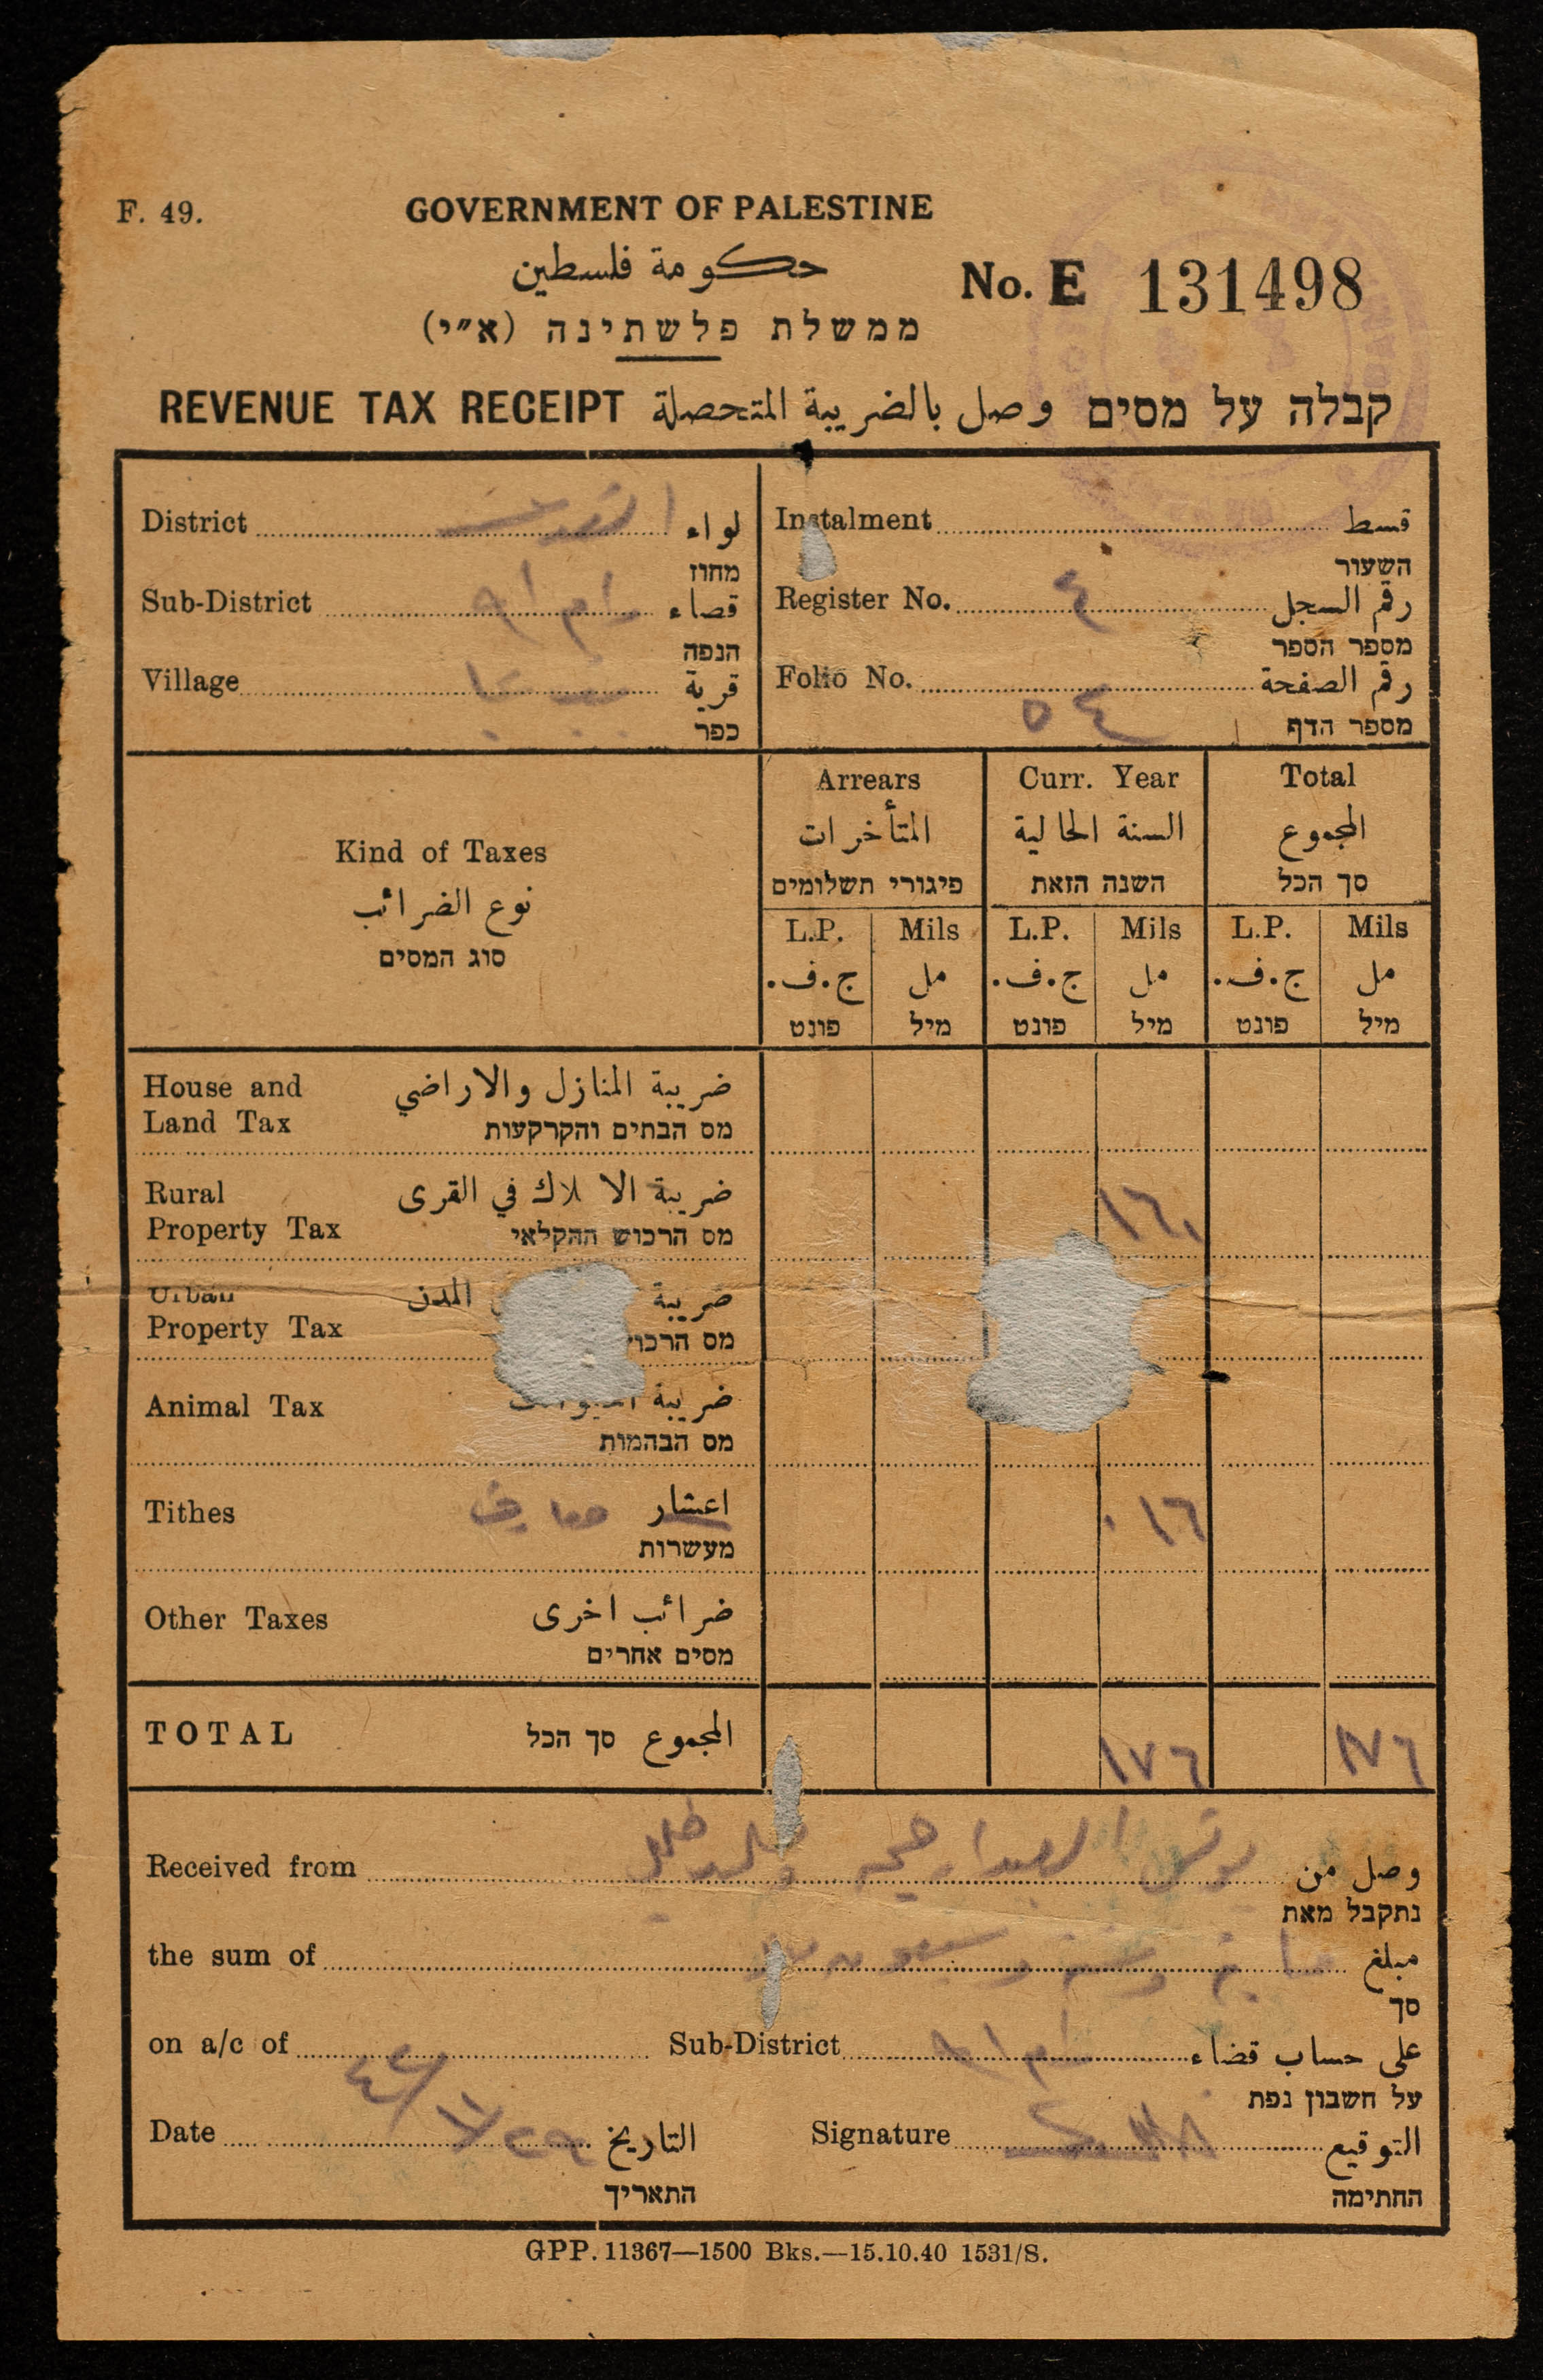 F. 49.
GOVERNMENT OF PALESTINE
حكومة فلسطين
No. E 131498
ממשלת פלשתינה (א״י)
REVENUE TAX RECEIPT وصل بالضريبة المتحصلة קבלה על מסים
District القدس لواء
מחוז
Sub-District رام الله قضاء
הנפה
Village قرية
כפר
Instalment قسط
השעור
Register No. ٤ رقم السجل
מספר הספר
Folio No. ٥٤ رقم الصفحة
מספר הדף
Kind of Taxes
نوع الضرائب
סוג המסים
Arrears Curr. Year Total
المتأخرات السنة الحالية المجموع
פיגורי תשלומים השנה הזאת סך הכל
L.P. Mils L.P. Mils L.P. Mils
ج.ف. مل ج.ف. مل ج.ف. مل
פונט מיל פונט מיל פונט מיל
House and ضريبة المنازل والاراضي
Land Tax מס הבתים והקרקעות
Rural ضريبة الا لاك في القرى ١٦٠
Property Tax מס הרכוש החקלאי
Urban ضريبة المدن
Property Tax מס הרכו
Animal Tax ضريبة
מס הבהמות
Tithes اعشار معارف ٠١٦
מעשרות
Other Taxes ضرائب اخرى
מסים אחרים
TOTAL المجموع סך הכל ١٧٦ ١٧٦
Received from وصل من
נתקבל מאת
the sum of مبلغ ماية وستة وسبعون مل
סך
on a/c of Sub-District رام الله على حساب قضاء
על חשבון נפת
Date التاريخ Signature التوقيع
התאריך החתימה
GPP. 11367—1500 Bks.—15.10.40 1531/S.